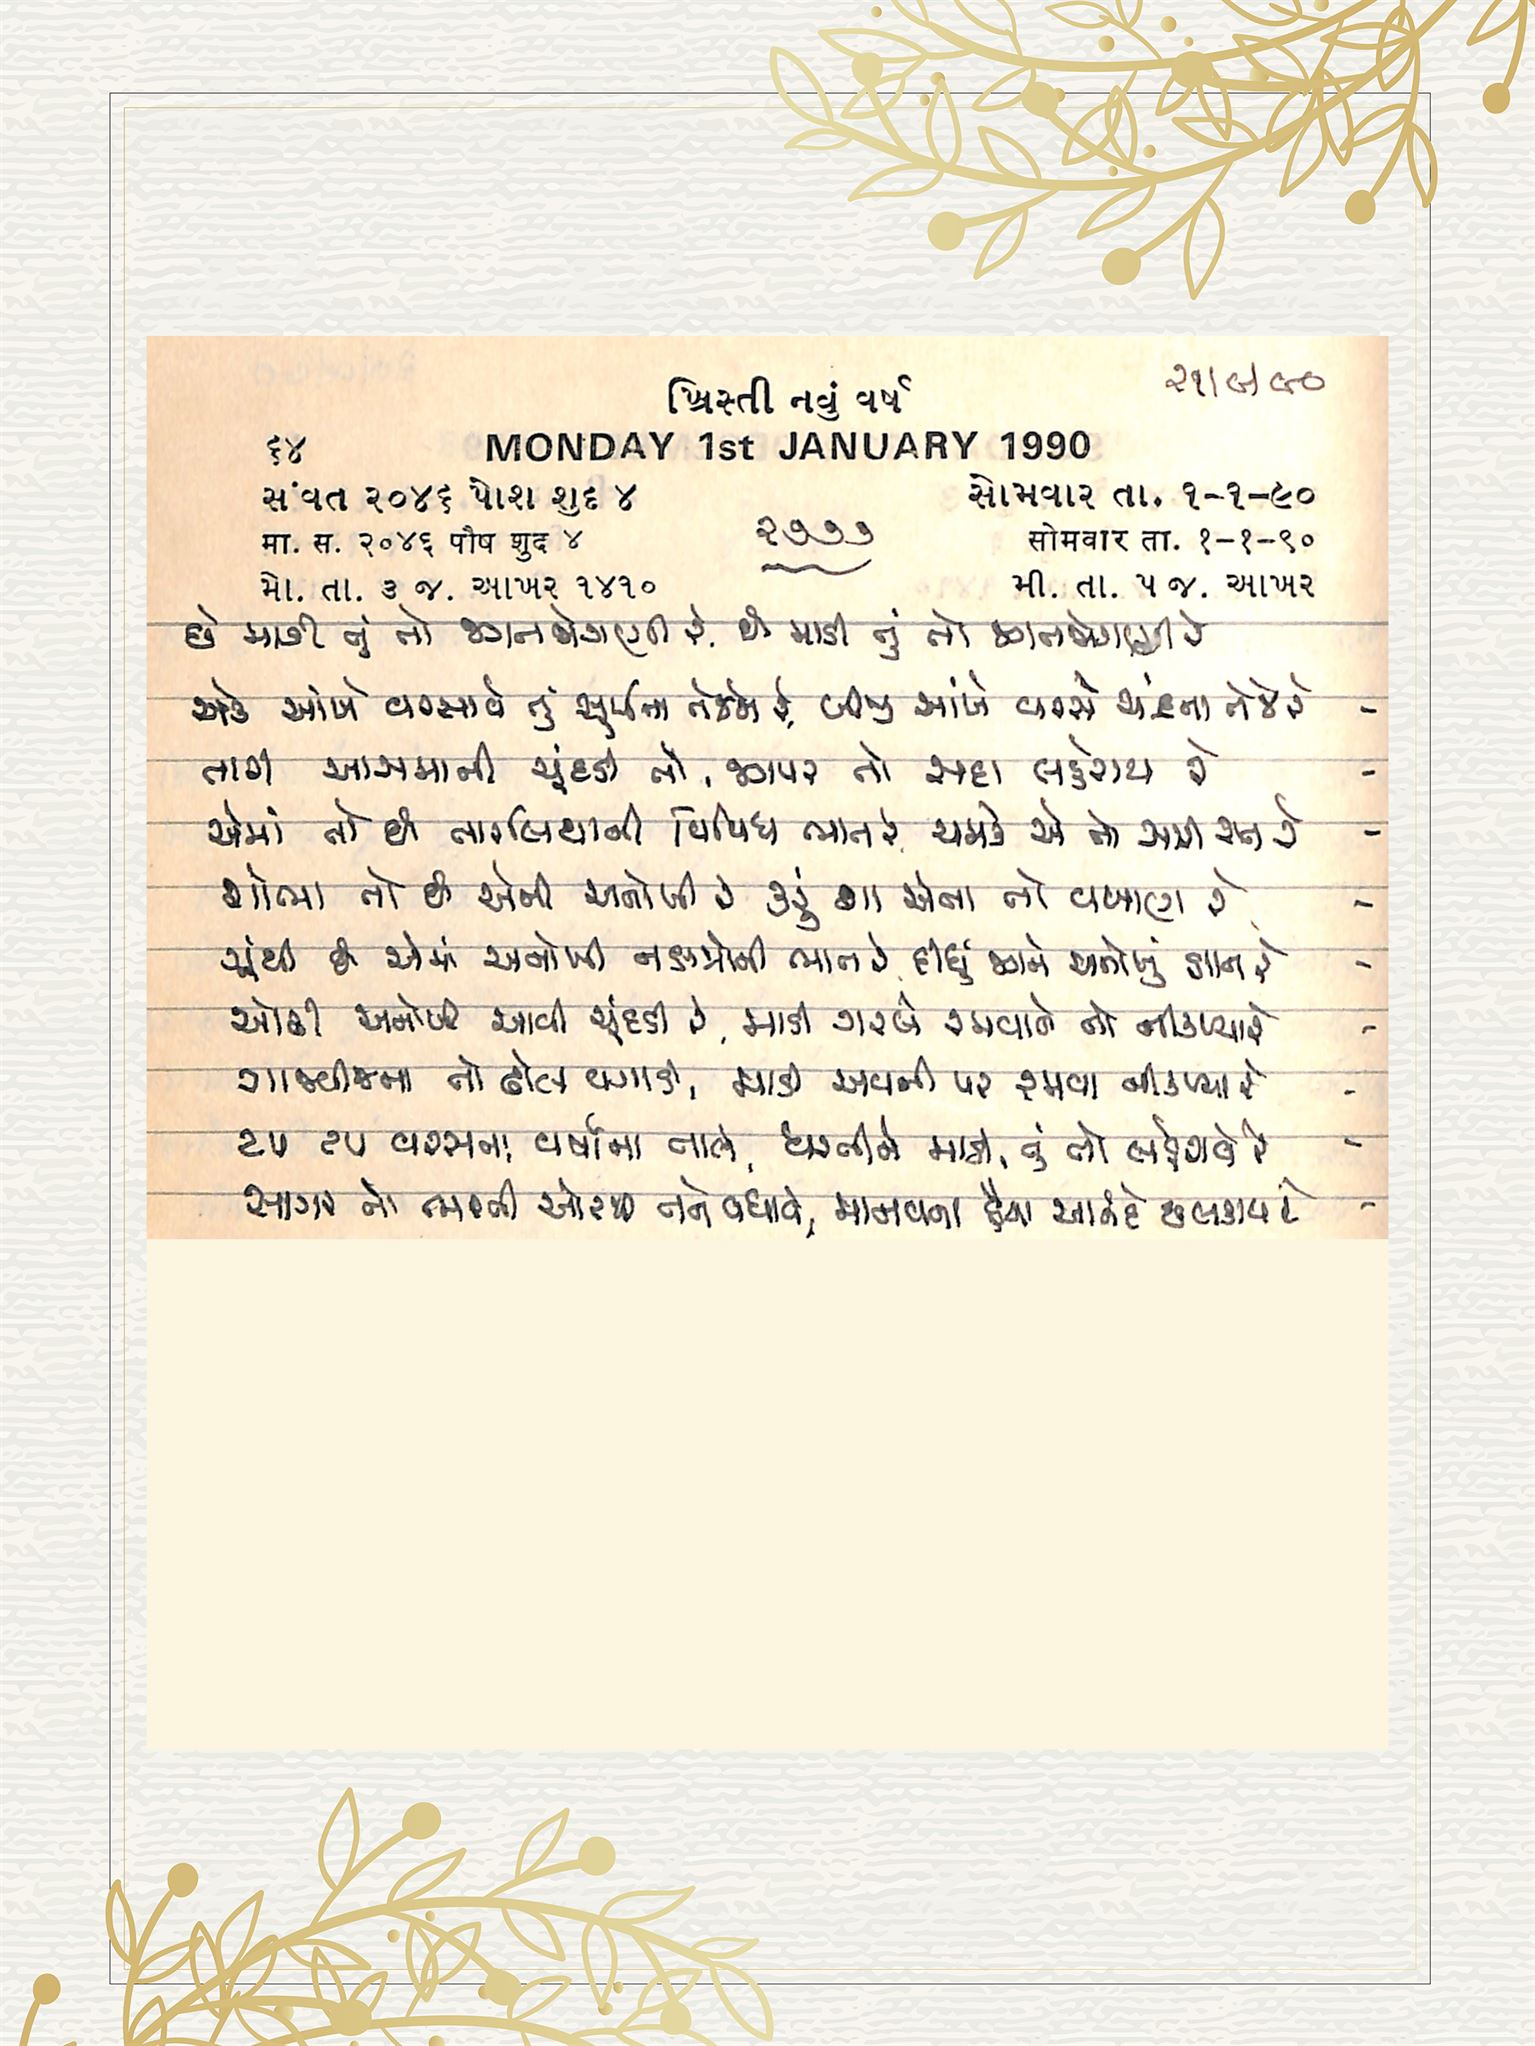 ૨૧/૯/૯૦
ખ્રિસ્તી નવું વર્ષ
૬૪ MONDAY 1st JANUARY 1990
સંવત ૨૦૪૬ પોશ શુદ ૪ સોમવાર તા. ૧-૧-૯૦
मा. स. २०४६ पौष शुद ४ ૨૭૭૭ सोमवार ता. १-१-९०
મો. તા. ૩ જ. આખર ૧૪૧૦ મી. તા. ૫ જ. આખર
છે માડી તું તો જગનજોગણી રે, છે માડી તું તો જગનજોગણી રે
એક આંખે વરસાવે તું સૂર્યના તેજને રે, બીજી આંખે વરસે ચંદ્રના તેજ રે -
તારી આસમાની ચૂંદડી તો, જગપર તો સદા લહેરાય રે -
એમાં તો છે તારલિયાની વિવિધ ભાત રે, ચમકે એ તો સારી રાત રે -
શોભા તો છે એની અનોખી રે કરું શા એના તો વખાણ રે -
ગૂંથી છે એમાં અનોખી ભાત રે, દીધું જગને અનોખું રે -
ઓઢી અનોખી આવી ચૂંદડી રે, માડી ગરબે રમવાને તો નીકળ્યા રે -
ગાજવીજના તો ઢોલ વગાડી, માડી અવની પર રમવા નીકળ્યા રે -
ટપ ટપ વરસતા વર્ષાના તાલે, ધરતીને માડી, તું તો લહેરાવે રે -
સાગર તો ભરતી ઓટે તને વધાવે, માનવના હૈયા આનંદે છલકાય રે -